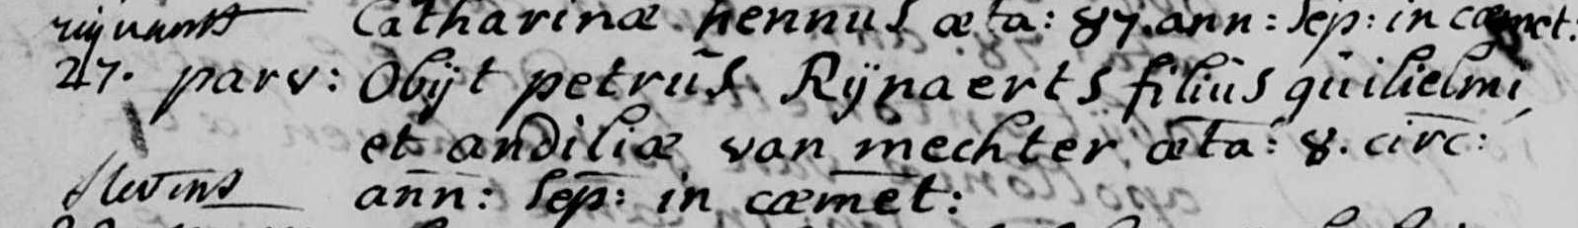 rijnants Catharinæ hennus æta: 87. ann: sep: in cæmet:
27. parv: Obijt petrus Rÿnaerts filius guilielmi,
et andiliæ van mechter, æta: 8. circ:
Stevens ann: sep: in cæmet: